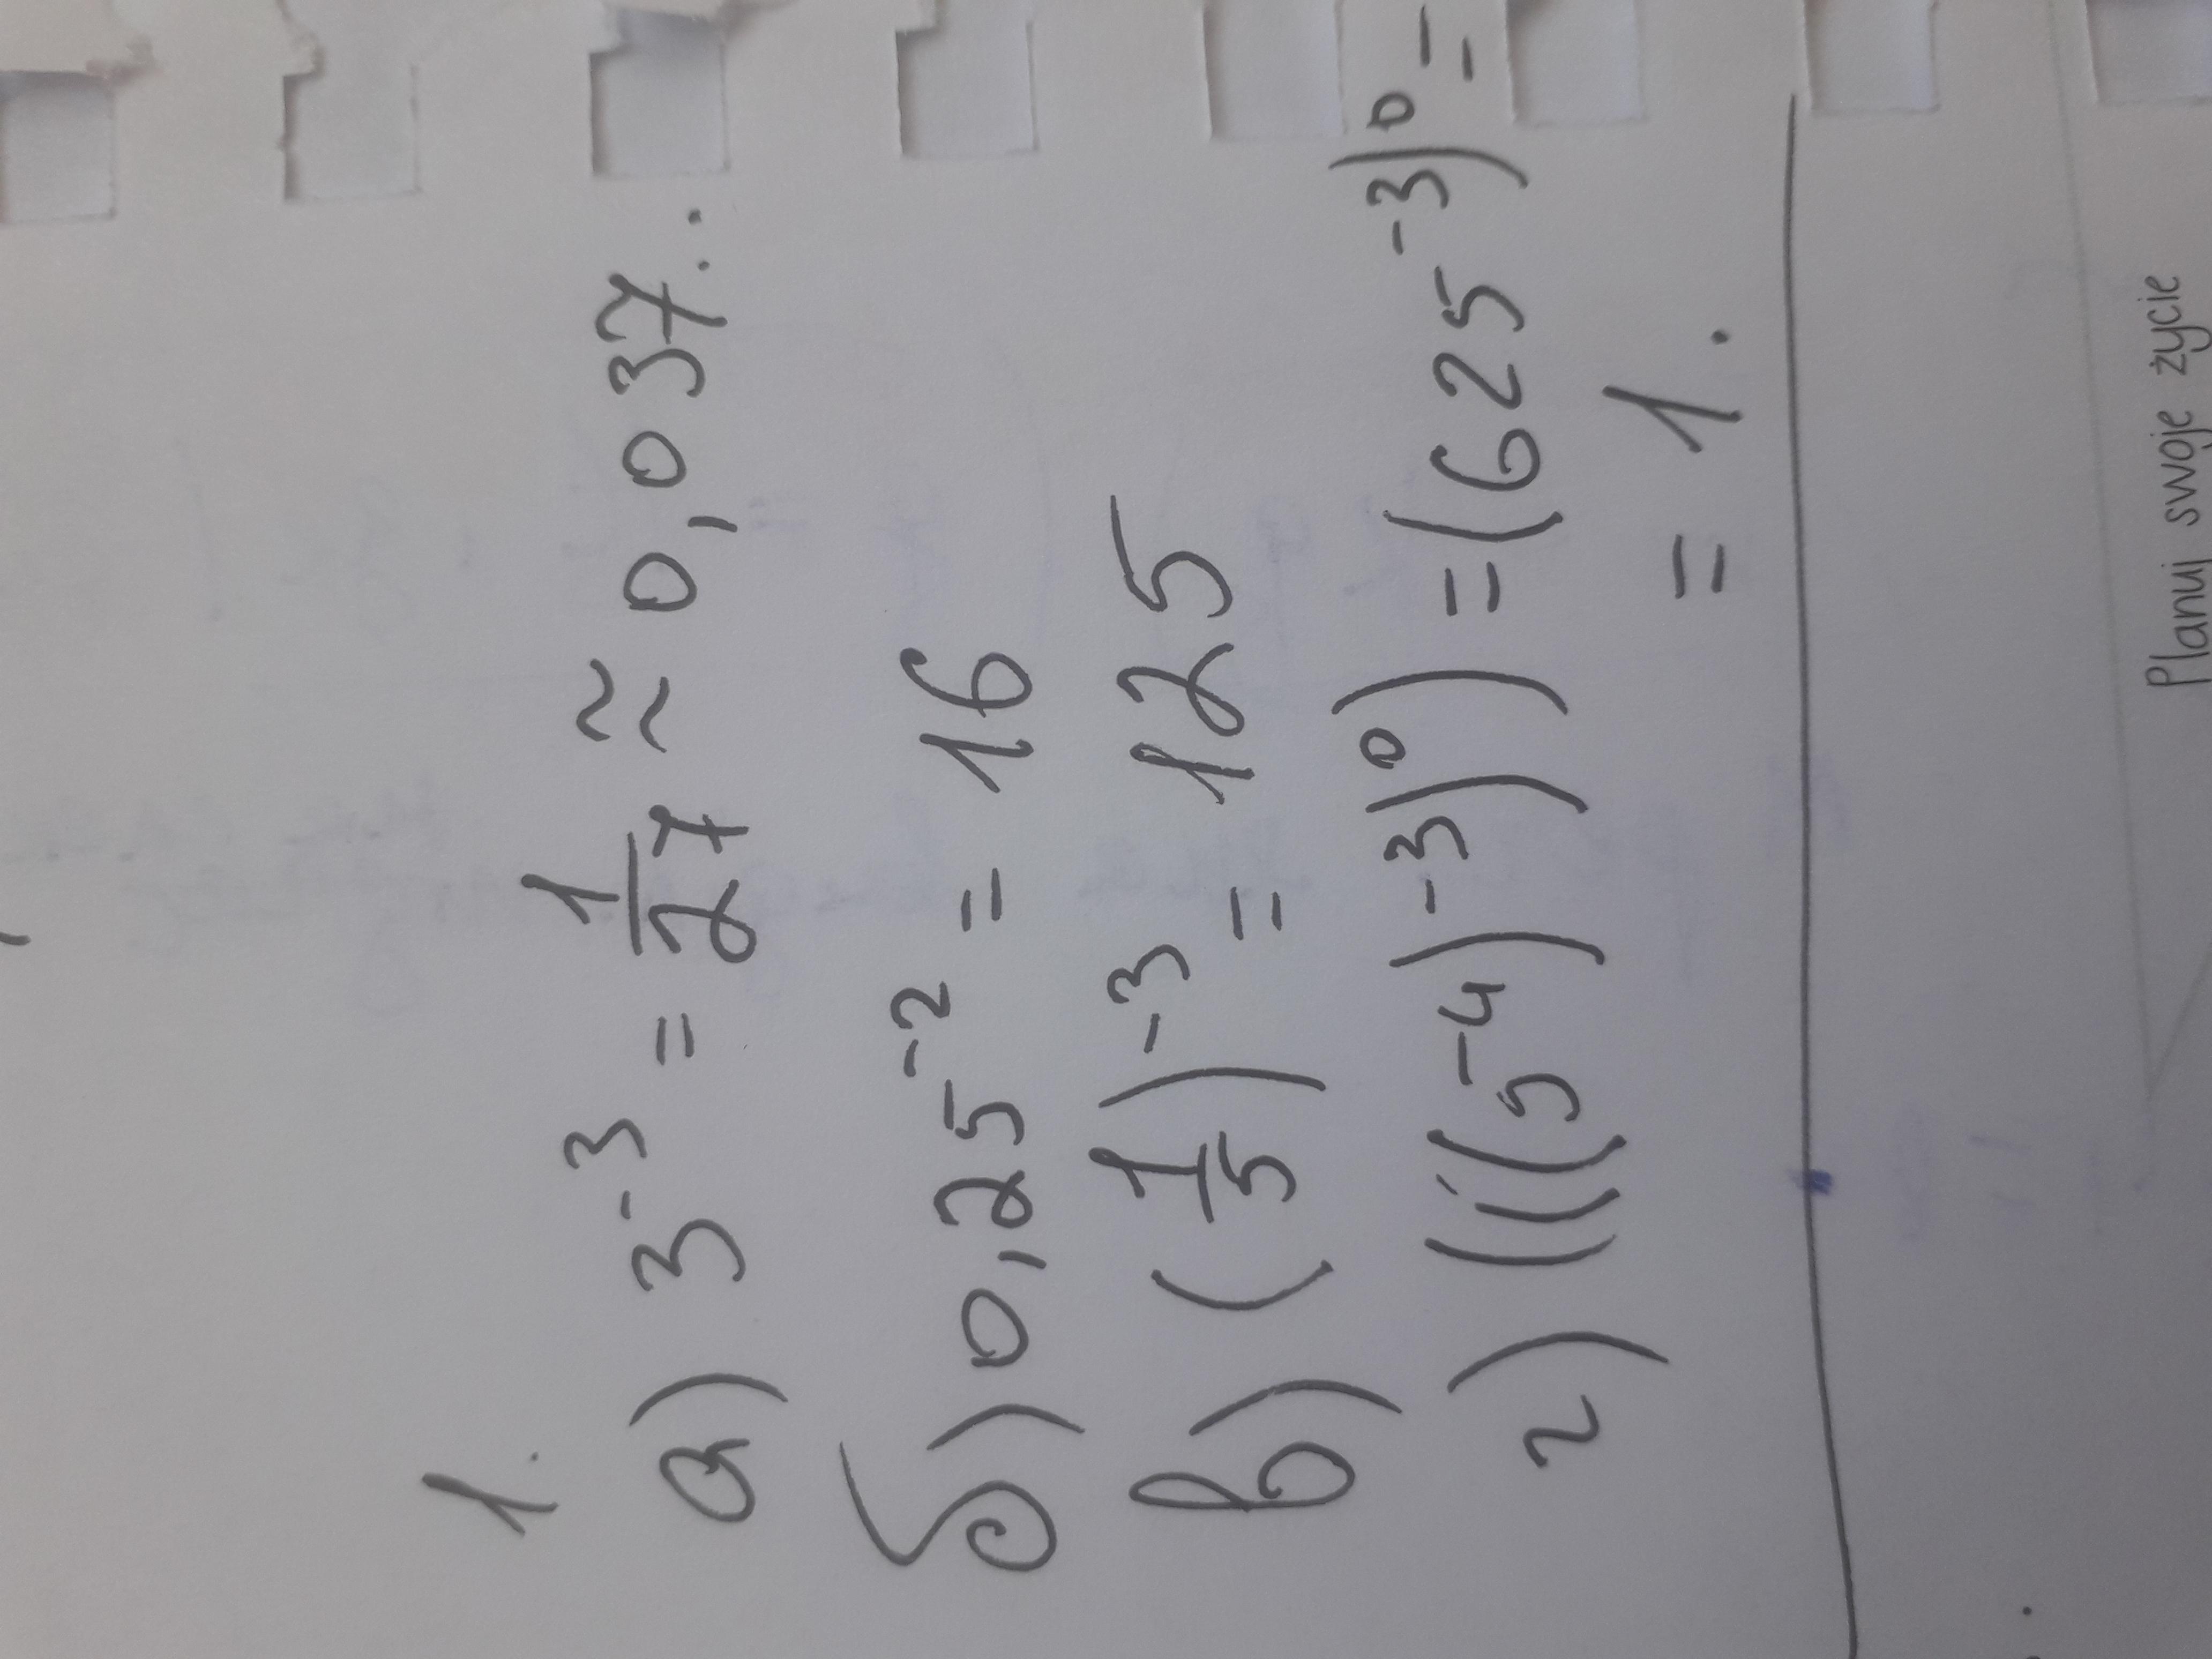 1.
а) 3⁻³ = 1/27 ≈ 0,037..
б) 0,25⁻² = 16
в) (1/5)⁻³ = 125
г) (((5⁻⁴)⁻³)⁰) = (625⁻³)⁰ =
= 1.
Planuj swoje życie